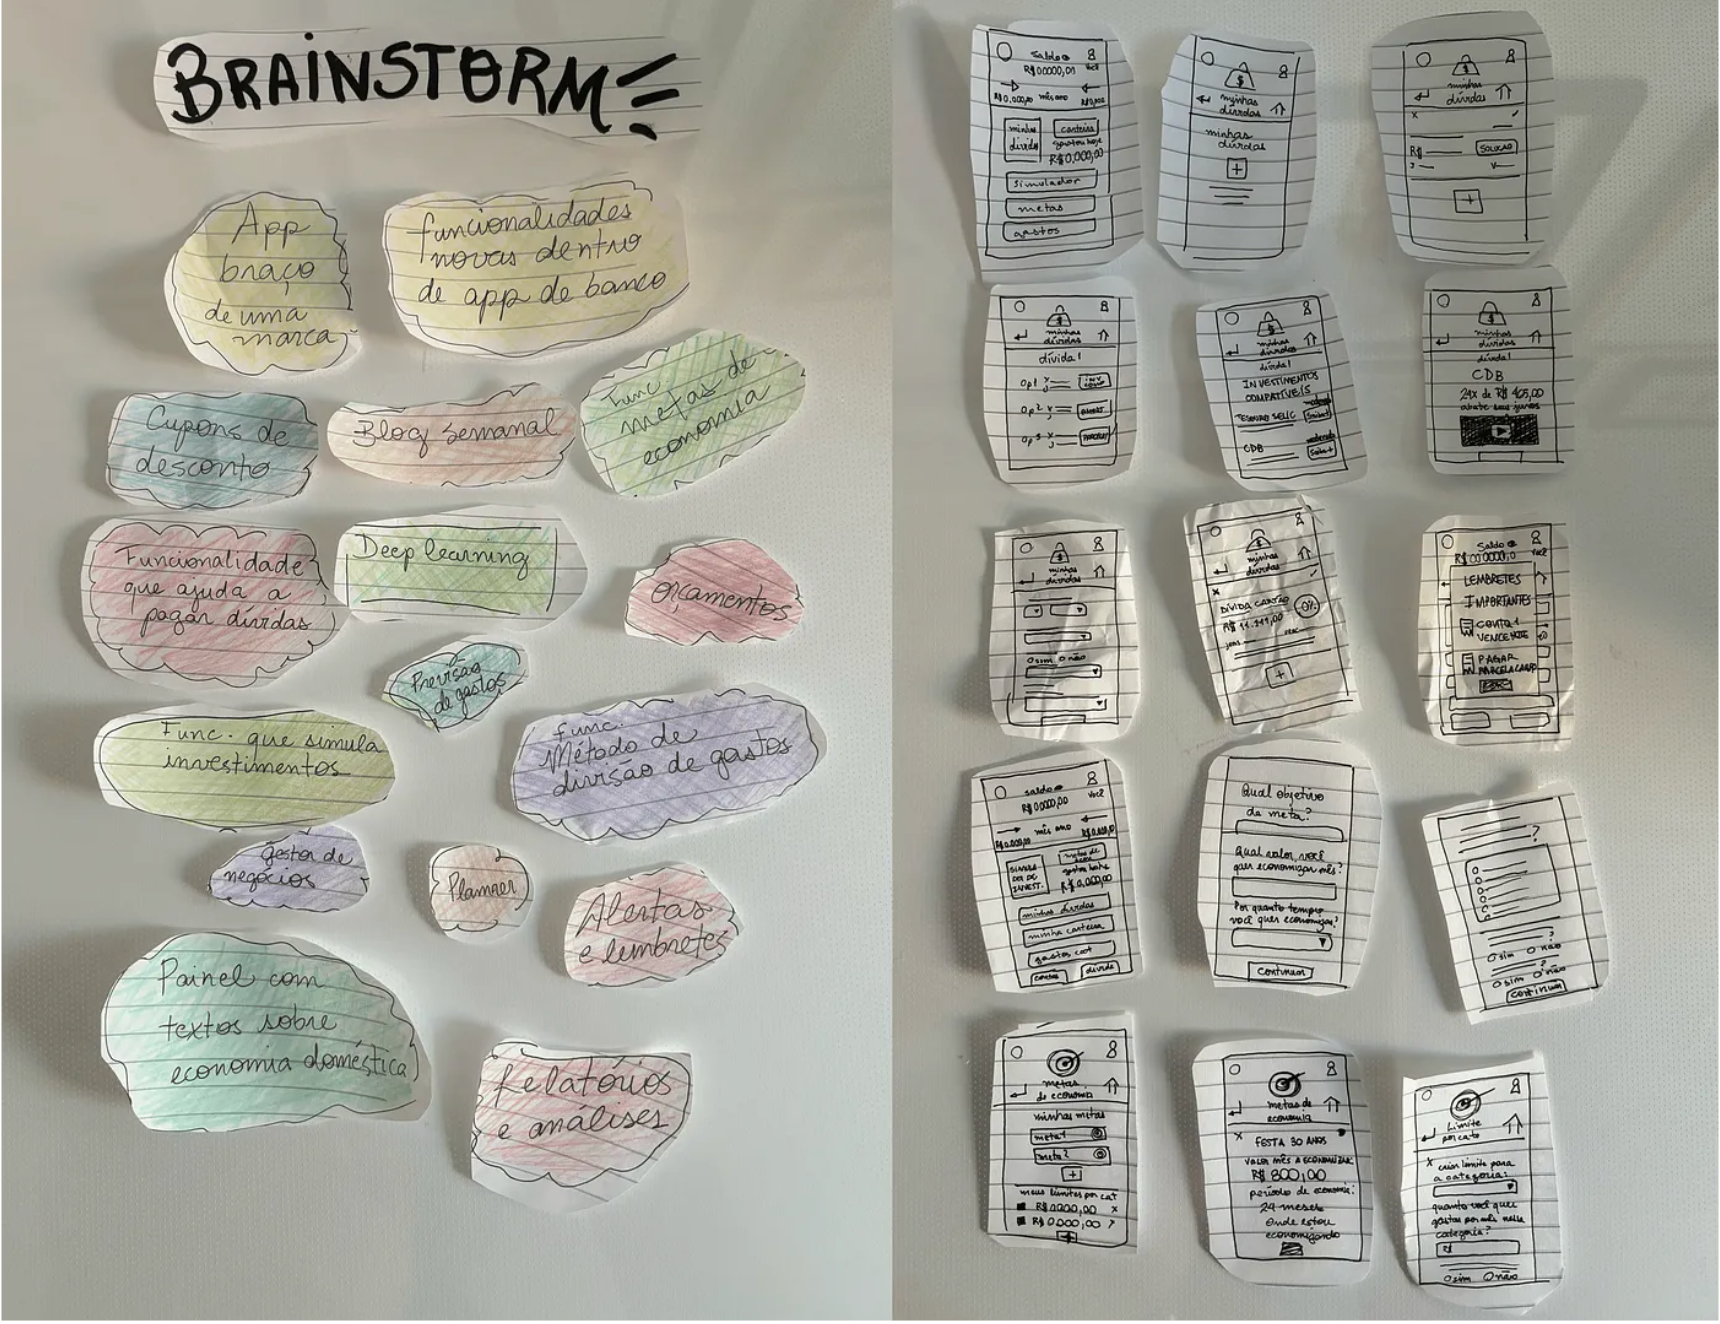 BRAINSTORM
App
braço
de uma
marca
funcionalidades
novas dentro
de app de banco
Cupons de
desconto
Blog semanal
Func.
metas de
economia
Funcionalidade
que ajuda a
pagar dívidas
Deep learning
orçamentos
Previsão
de gastos
Func. que simula
investimentos
func.
Método de
divisão de gastos
gestor de
negócios
Planner
Alertas
e lembretes
Painel com
textos sobre
economia doméstica
Relatórios
e análises
Saldo
R$00000,01
mês ano
minhas
dívidas
carteira
R$0,000,00
simulador
metas
gastos
$
minhas
dívidas
minhas
dívidas
+
$
minhas
dívidas
x
R$
SOLUÇÃO
+
$
minhas
dívidas
dívida 1
Op1
Op2
Op3
$
minhas
dívidas
dívida 1
INVESTIMENTOS
COMPATÍVEIS
TESOURO SELIC
CDB
$
minhas
dívidas
dívida 1
CDB
24x de R$ 405,00
$
minhas
dívidas
O sim O não
$
minhas
dívidas
x
DÍVIDA CARTÃO
+
Saldo
LEMBRETES
IMPORTANTES
CONTA 1
PAGAR
saldo
R$00000,00
você
mês ano
R$0.000,00
minhas dívidas
minha carteira
gastos cat
Qual objetivo
da meta?
Qual valor você
quer economizar mês?
Por quanto tempo
você quer economizar?
continuar
?
?
O sim O não
?
O sim O não
continuar
metas
de economia
minhas metas
meta 1
meta 2
+
meus limites por cat
R$0000,00 x
R$0.000,00
+
metas de
economia
x FESTA 30 ANOS
VALOR MÊS A ECONOMIZAR:
R$ 800,00
período de economia:
24 meses
onde estou
economizando
Limite
por cat
x criar limite para
a categoria:
quanto você quer
gastar por mês nessa
categoria?
O sim O não